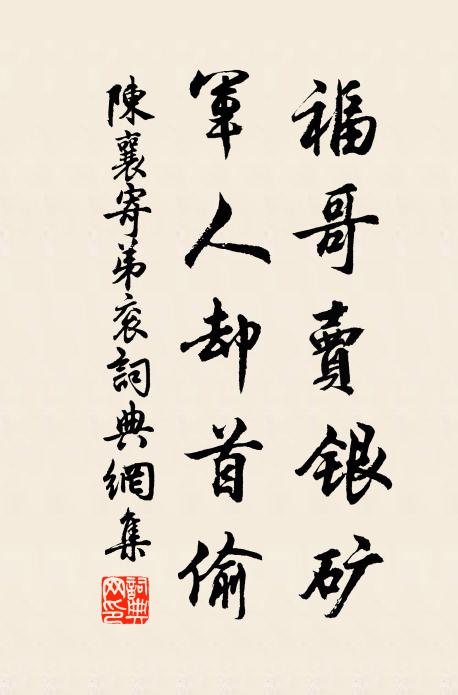 福哥賣銀矿
軍人却首偷
陳襄寄弟衮詞典網集
詞典网印